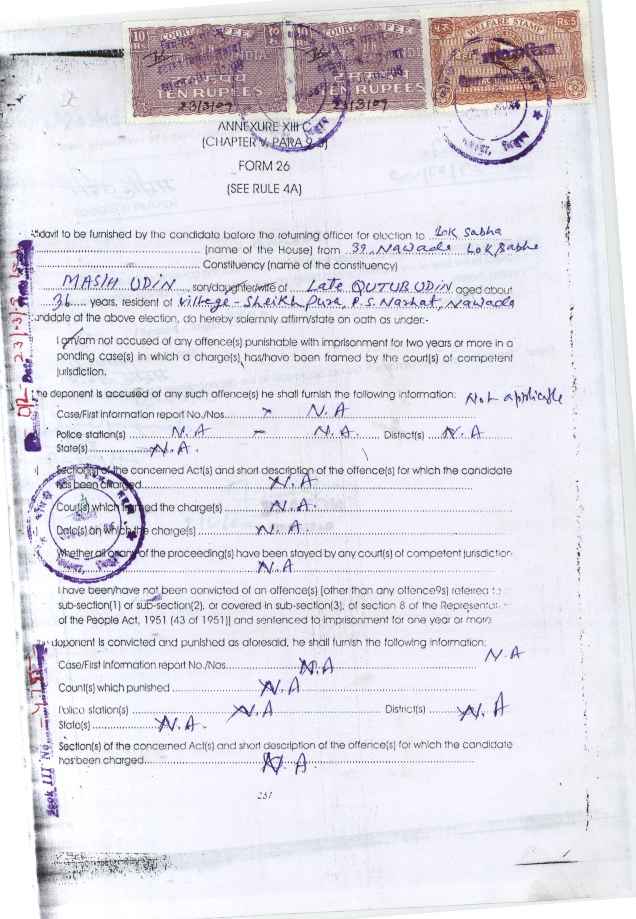 10 COURT FEE
INDIA
TEN RUPEES
23/3/09
10 COURT FEE
INDIA
TEN RUPEES
23/3/09
WELFARE STAMP RS.5
ANNEXURE XIII C
(CHAPTER V, PARA 9.3)
FORM 26
(SEE RULE 4A)
Affidavit to be furnished by the candidate before the returning officer for election to Lok Sabha
(name of the House) from 39, Nawada Lok Sabha
Constituency (name of the constituency)
MASIH UDIN, son/daughter/wife of Late QUTUB UDIN aged about
36 years, resident of Village - Sheikhpura, P.S. Narhat, Nawada
candidate at the above election, do hereby solemnly affirm/state on oath as under:-
I am/am not accused of any offence(s) punishable with imprisonment for two years or more in a
ponding case(s) in which a charge(s) has/have been framed by the court(s) of competent
jurisdiction.
the deponent is accused of any such offence(s) he shall furnish the following information: Not applicable
Case/First information report No./Nos. N. A
Police station(s) N. A - N. A. District(s) N. A
State(s) N. A.
Section(s) of the concerned Act(s) and short description of the offence(s) for which the candidate
has been charged N. A
Court(s) which framed the charge(s) N. A.
Date(s) on which the charge(s) N. A.
Whether all or any of the proceeding(s) have been stayed by any court(s) of competent jurisdiction
N. A
I have been/have not been convicted of an offence(s) [other than any offence9s) referred to
sub-section(1) or sub-section(2), or covered in sub-section(3), of section 8 of the Representat
of the People Act, 1951 (43 of 1951)] and sentenced to imprisonment for one year or more
deponent is convicted and punished as aforesaid, he shall furnish the following information:
N. A
Case/First information report No./Nos. N. A
Count(s) which punished N. A
Police station(s) N. A District(s) N. A
State(s) N. A.
Section(s) of the concerned Act(s) and short description of the offence(s) for which the candidate
has been charged N. A.
251